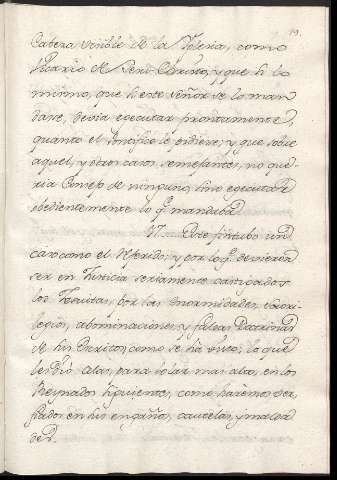 19.
Cabeza visible de la Iglesia, como
Vicario de Jesu-Christo, y que si lo
mismo, que este Señor se lo man
dase, devia executar prontamente,
quanto el Pontifice le pidiese; y que sobre
aquel, y otros casos semejantes, no que-
ria Consejo de ninguno, sino executar
obedientemente lo q mandaba
17. Este sin tubo un
caso como el referido, y por lo q devieron
ser en Justicia seriamente castigados
los Jesuitas, por las enormidades, sacri-
legios, abominaciones, y falsas Doctrinas
de sus Escritos, como se ha visto; lo que
les dió Alas, para volar mas altos, en los
Reynados siguientes, como haremos ver,
fiados en sus engaños, cautelas, y malda
des.